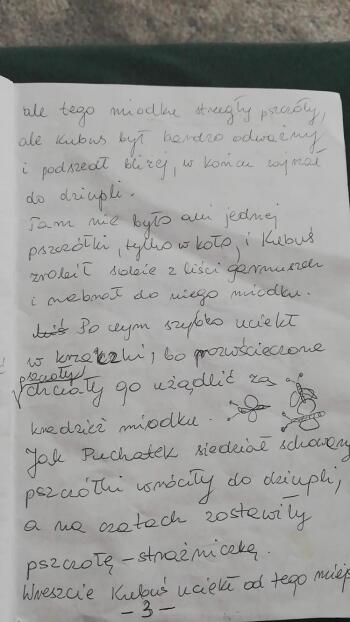 ale tego miodku strzegły pszczoły,
ale Kubuś był bardzo odważny
i podszedł bliżej, w końcu zajrzał
do dziupli.
Tam nie było ani jednej
pszczółki, tylko w koło, i Kubuś
zrobił sobie z liści garnuszek
i nabrał do niego miodku.
Po czym szybko uciekł
w krzaczki, bo rozwścieczone
pszczoły
chciały go użądlić za
kradzież miodku.
Jak Puchatek siedział schowany
pszczółki wróciły do dziupli,
a na czatach zostawiły
pszczołę - strażniczkę.
Wreszcie Kubuś uciekł od tego miejs
- 3 -